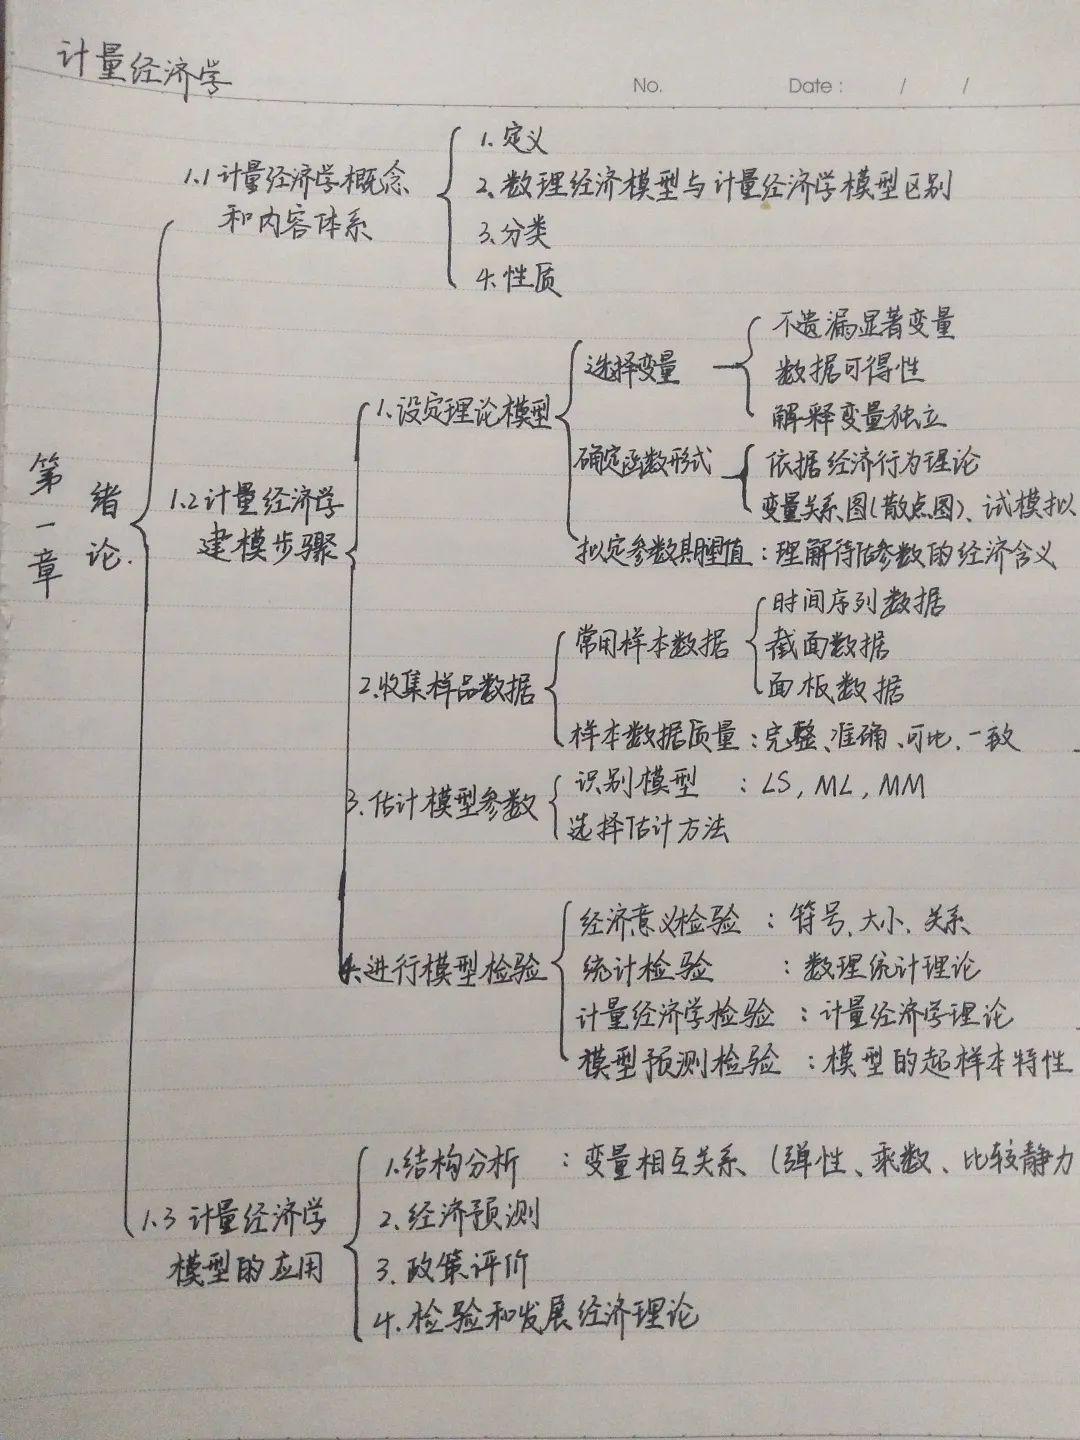 计量经济学
No.
Date: / /
第一章 绪论.
1.1 计量经济学概念
和内容体系
1. 定义
2. 数理经济模型与计量经济学模型区别
3. 分类
4. 性质
1.2 计量经济学
建模步骤
1. 设定理论模型
选择变量
不遗漏显著变量
数据可得性
解释变量独立
确定函数形式
依据经济行为理论
变量关系图(散点图)、试模拟
拟定参数期望值：理解待估参数的经济含义
2. 收集样品数据
常用样本数据
时间序列数据
截面数据
面板数据
样本数据质量：完整、准确、可比、一致
3. 估计模型参数
识别模型 ：LS, ML, MM
选择估计方法
4. 进行模型检验
经济意义检验 ：符号、大小、关系
统计检验 ：数理统计理论
计量经济学检验 ：计量经济学理论
模型预测检验 ：模型的超样本特性
1.3 计量经济学
模型的应用
1. 结构分析 ：变量相互关系、(弹性、乘数、比较静力
2. 经济预测
3. 政策评价
4. 检验和发展经济理论